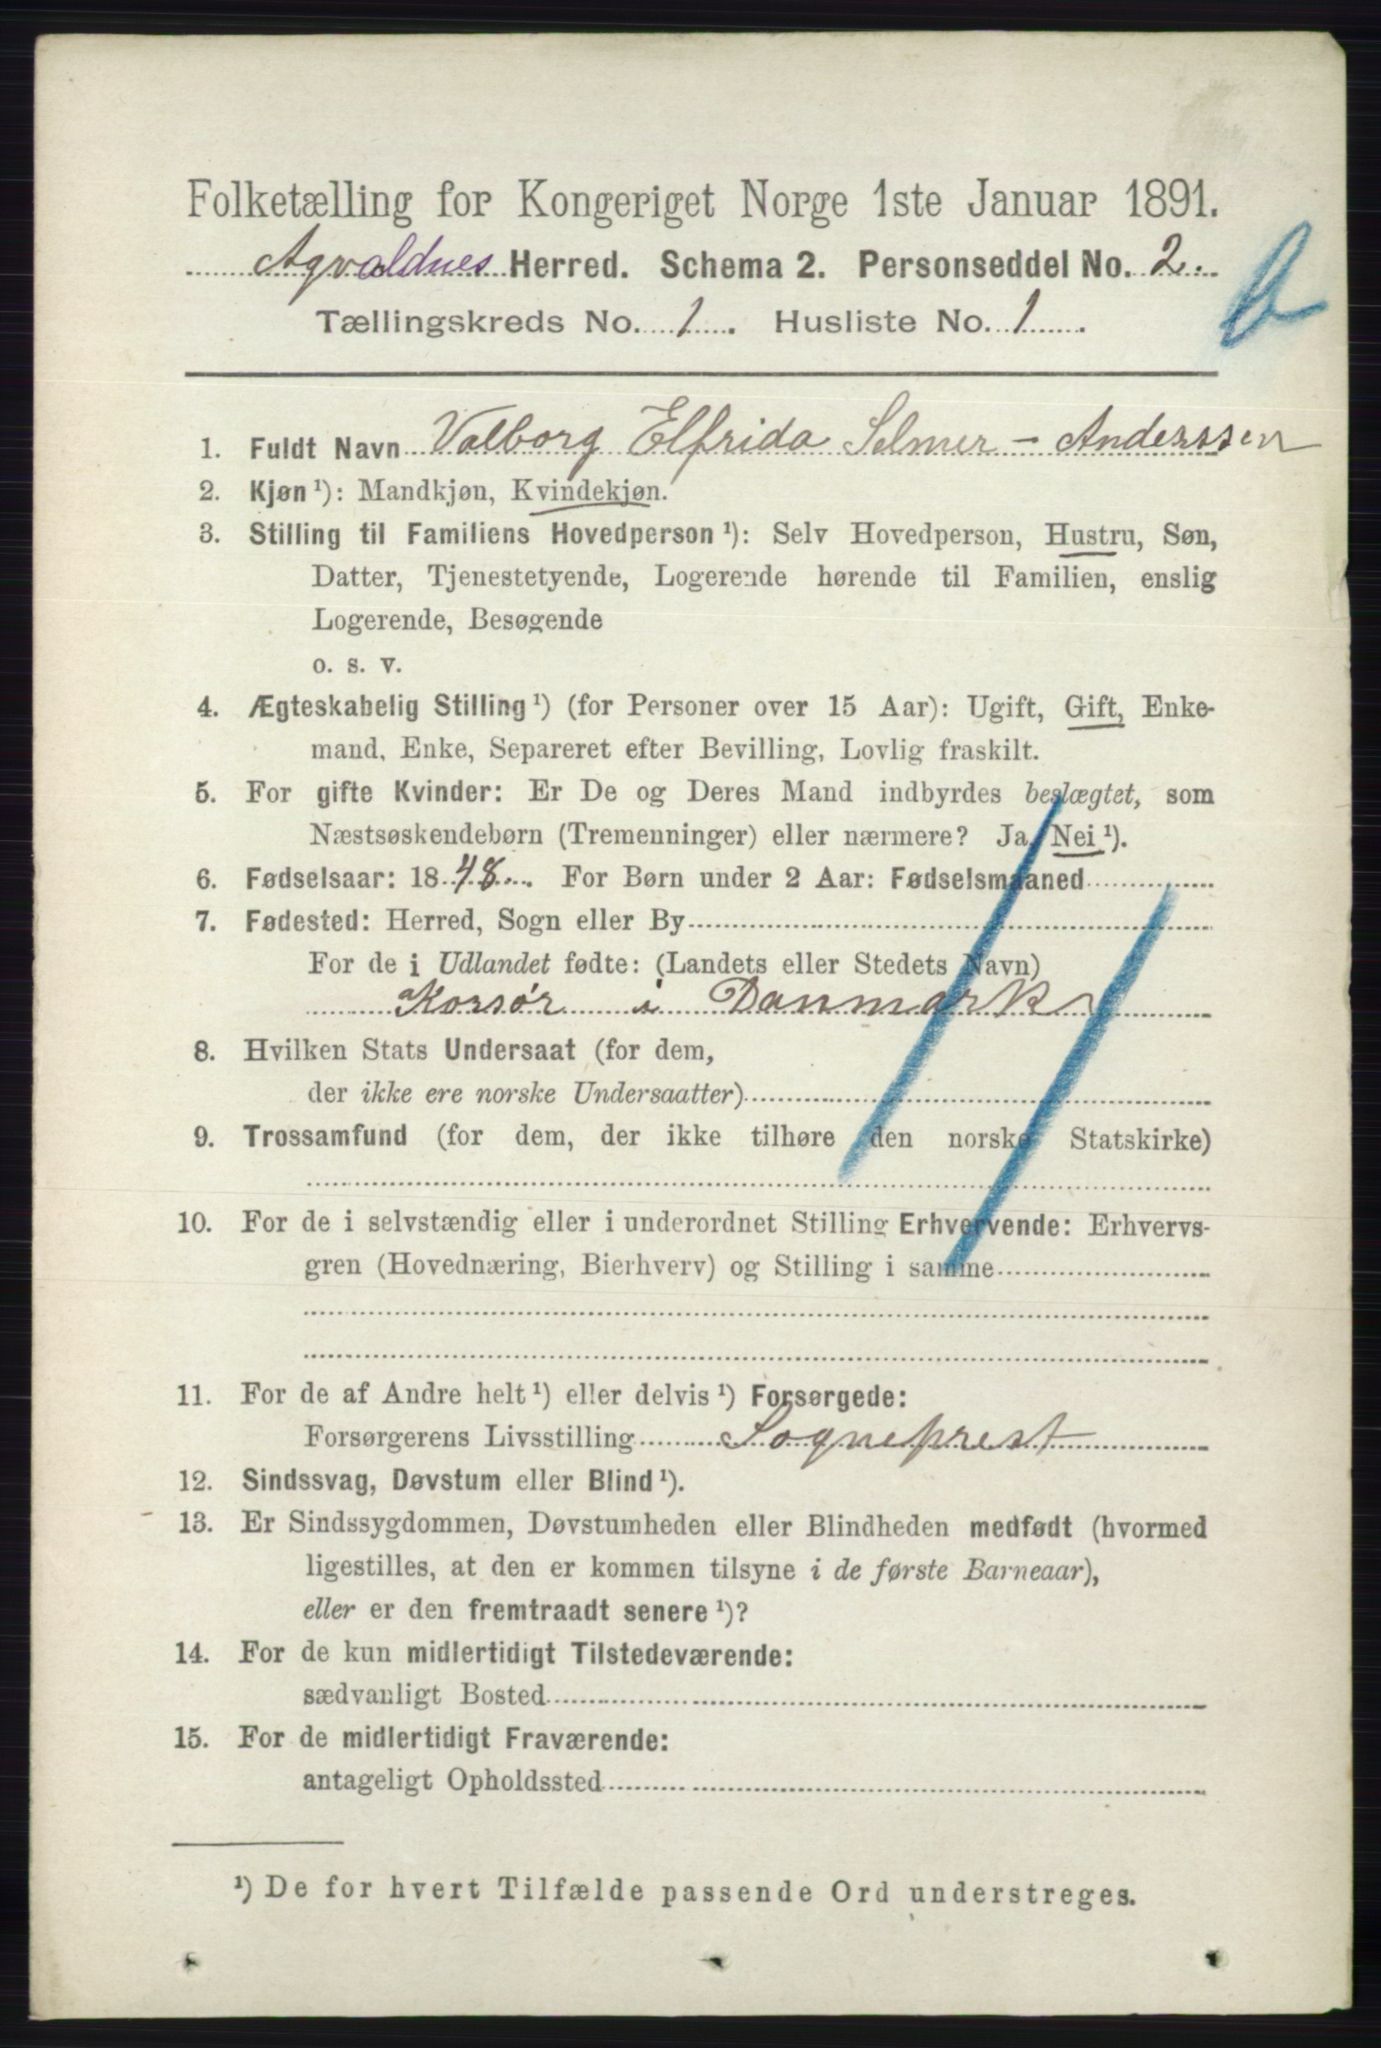 Folketælling for Kongeriget Norge 1ste Januar 1891.
Agvaldnes Herred. Schema 2. Personseddel No. 2.
Tællingskreds No. 1. Husliste No. 1
1. Fuldt Navn Valborg Elfrida Selmer - Anderssen
2. Kjøn ¹): Mandkjøn, Kvindekjøn.
3. Stilling til Familiens Hovedperson ¹): Selv Hovedperson, Hustru, Søn,
Datter, Tjenestetyende, Logerende hørende til Familien, enslig
Logerende, Besøgende
o. s. v.
4. Ægteskabelig Stilling ¹) (for Personer over 15 Aar): Ugift, Gift, Enke-
mand, Enke, Separeret efter Bevilling, Lovlig fraskilt.
5. For gifte Kvinder: Er De og Deres Mand indbyrdes beslægtet, som
Næstsøskendebørn (Tremenninger) eller nærmere? Ja, Nei ¹).
6. Fødselsaar: 1848. For Børn under 2 Aar: Fødselsmaaned
7. Fødested: Herred, Sogn eller By
For de i Udlandet fødte: (Landets eller Stedets Navn)
Korsør i Danmark
8. Hvilken Stats Undersaat (for dem,
der ikke ere norske Undersaatter)
9. Trossamfund (for dem, der ikke tilhøre den norske Statskirke)
10. For de i selvstændig eller i underordnet Stilling Erhvervende: Erhvervs-
gren (Hovednæring, Bierhverv) og Stilling i samme
11. For de af Andre helt ¹) eller delvis ¹) Forsørgede:
Forsørgerens Livsstilling Sogneprest
12. Sindssvag, Døvstum eller Blind ¹).
13. Er Sindssygdommen, Døvstumheden eller Blindheden medfødt (hvormed
ligestilles, at den er kommen tilsyne i de første Barneaar),
eller er den fremtraadt senere ¹)?
14. For de kun midlertidigt Tilstedeværende:
sædvanligt Bosted
15. For de midlertidigt Fraværende:
antageligt Opholdssted
¹) De for hvert Tilfælde passende Ord understreges.